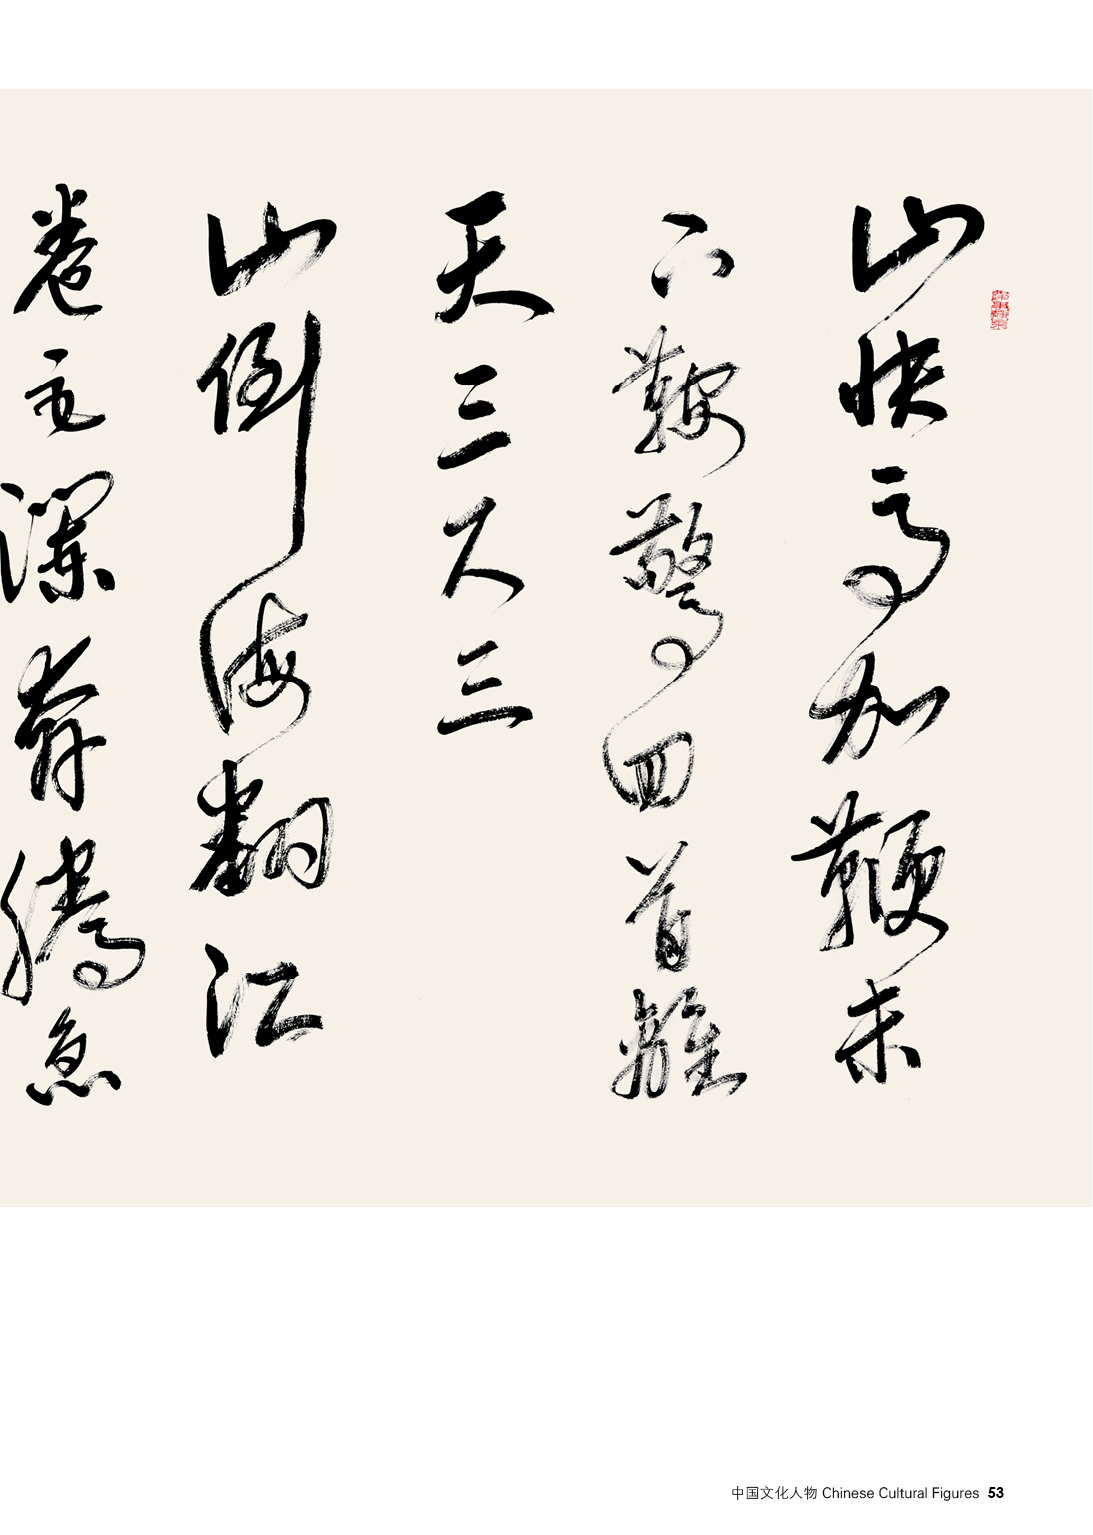 山快馬加鞭未
下鞍驚回首離
天三尺三
山倒海翻江
卷巨瀾奔騰急
中国文化人物 Chinese Cultural Figures 53